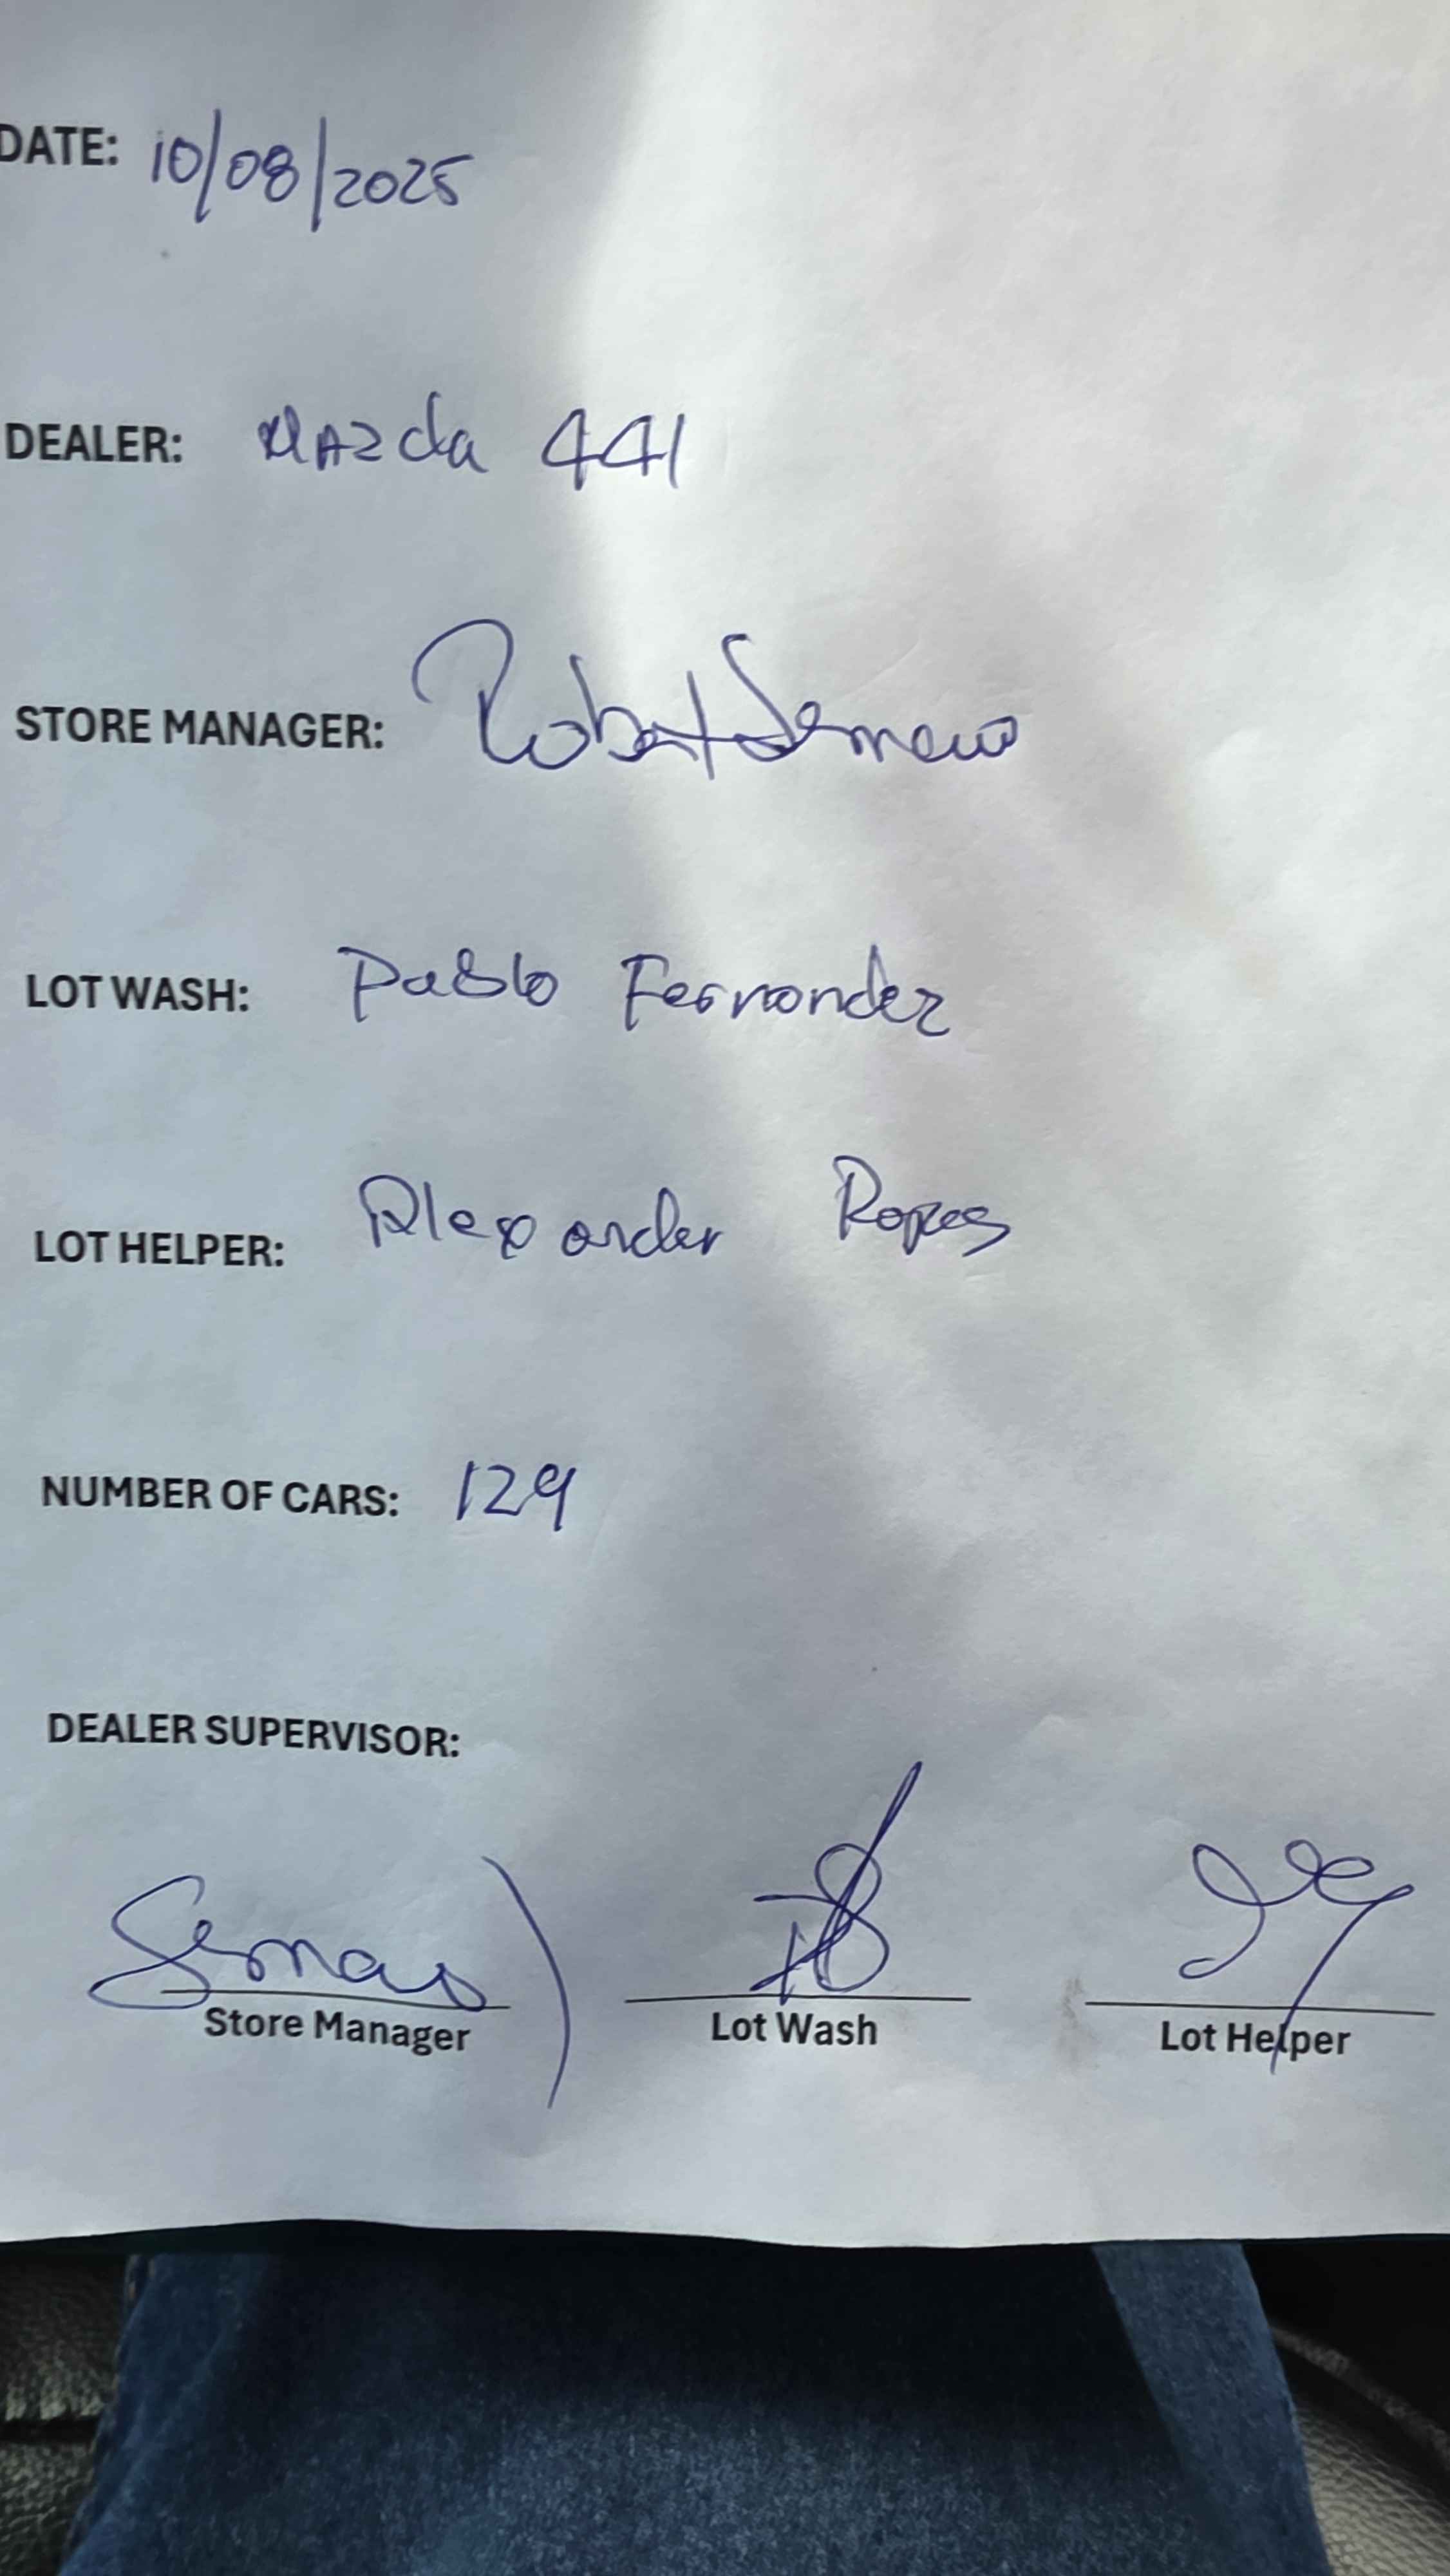 DATE: 10/08/2025
DEALER: Mazda 441
STORE MANAGER: Robert
LOT WASH: Pablo Fernandez
LOT HELPER: Alexander
NUMBER OF CARS: 129
DEALER SUPERVISOR:
Store Manager Lot Wash Lot Helper